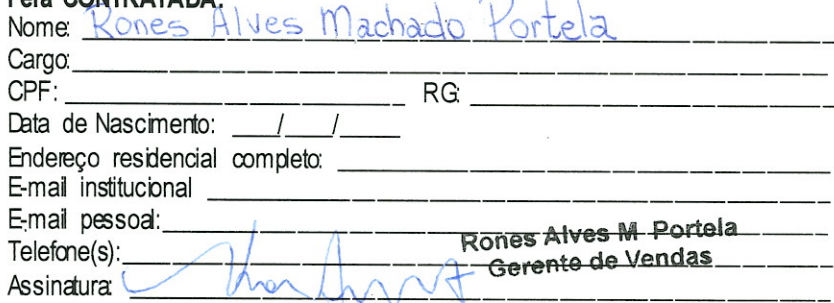 Pela CONTRATADA:
Nome: Rones Alves Machado Portela
Cargo:
CPF: RG:
Data de Nascimento: / /
Endereço residencial completo:
E-mail institucional
E-mail pessoal:
Rones Alves M Portela
Telefone(s):
Gerente de Vendas
Assinatura: